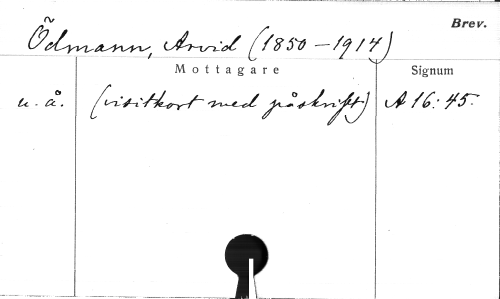 Brev.
Ödmann, Arvid (1850-1914)
Mottagare Signum
u. å. (visitkort med påskrift) A 16:45.